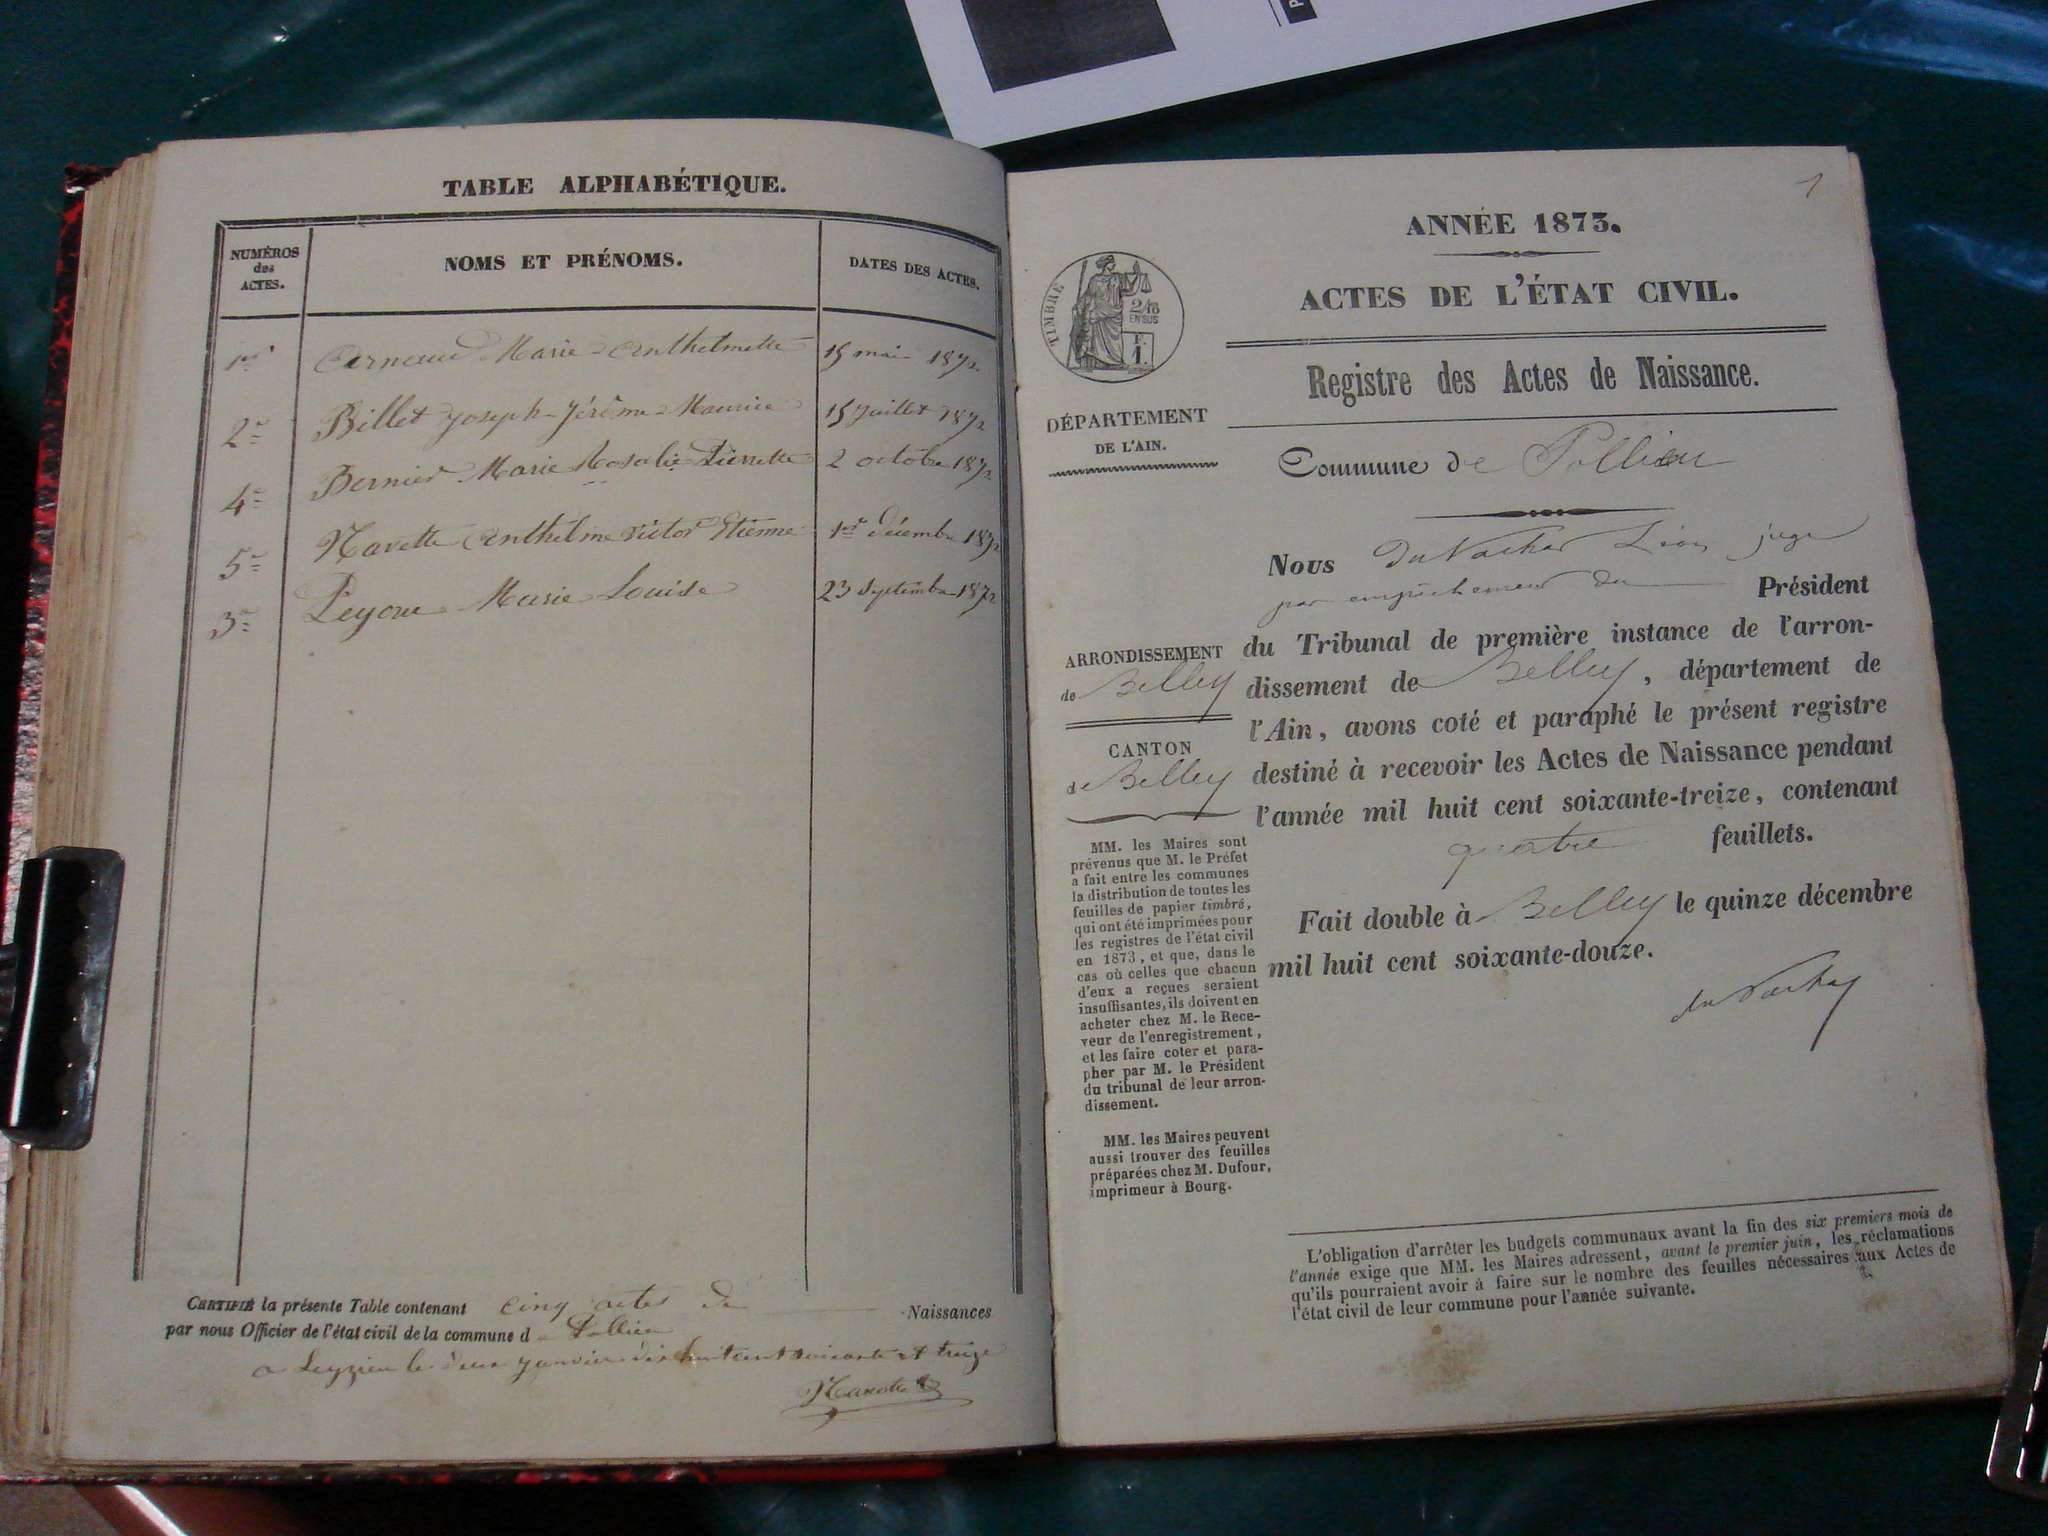 TABLE ALPHABÉTIQUE.
NUMÉROS
des
ACTES.
NOMS ET PRÉNOMS.
DATES DES ACTES.
1er Marie Anthelmette 15 mai 1872
2e Billet Joseph Jérôme Maurice 15 Juillet 1872
4e Bernier Marie Rosalie Pierrette 2 octobre 1872
5e Navette Anthelme Victor Etienne 1er décembre 1872
3e Marie Louise 23 septembre 1872
CERTIFIÉ la présente Table contenant cinq actes de Naissances
par nous Officier de l'état civil de la commune d Pollieu
a Leyzieu le deux janvier dix huit cent soixante et treize
Navette
1
ANNÉE 1873.
ACTES DE L'ÉTAT CIVIL.
TIMBRE
2/10
EN SUS
F.
1.
Registre des Actes de Naissance.
DÉPARTEMENT
DE L'AIN.
Commune de Pollieu
Nous Du Vachat Léon juge
par empêchement du Président
du Tribunal de première instance de l'arron-
dissement de Belley, département de
l'Ain, avons coté et paraphé le présent registre
destiné à recevoir les Actes de Naissance pendant
l'année mil huit cent soixante-treize, contenant
quatre feuillets.
Fait double à Belley le quinze décembre
mil huit cent soixante-douze.
du Vachat
ARRONDISSEMENT
de Belley
CANTON
de Belley
MM. les Maires sont
prévenus que M. le Préfet
a fait entre les communes
la distribution de toutes les
feuilles de papier timbré,
qui ont été imprimées pour
les registres de l'état civil
en 1873, et que, dans le
cas où celles que chacun
d'eux a reçues seraient
insuffisantes, ils doivent en
acheter chez M. le Rece-
veur de l'enregistrement,
et les faire coter et para-
pher par M. le Président
du tribunal de leur arron-
dissement.
MM. les Maires peuvent
aussi trouver des feuilles
préparées chez M. Dufour,
imprimeur à Bourg.
L'obligation d'arrêter les budgets communaux avant la fin des six premiers mois de
l'année exige que MM. les Maires adressent, avant le premier juin, les réclamations
qu'ils pourraient avoir à faire sur le nombre des feuilles nécessaires aux Actes de
l'état civil de leur commune pour l'année suivante.